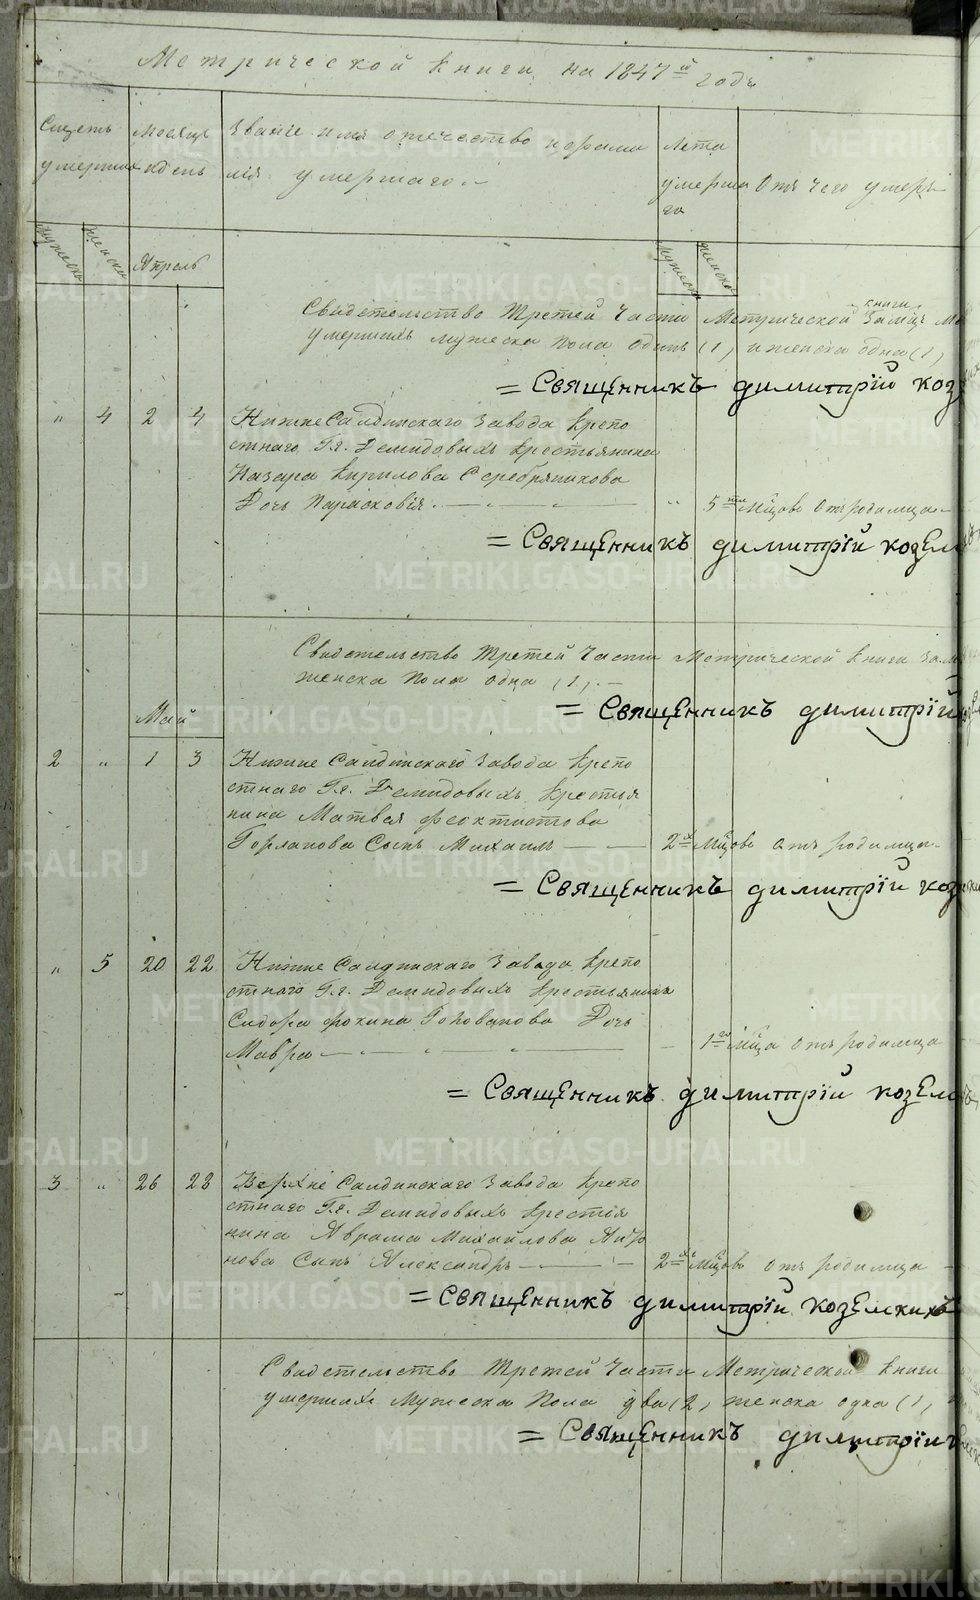 Метрической книги на 1847й годъ
Счетъ умершихъ
Месяцъ и день
Званіе имя отечество и фамилія умершаго.
Лета умершаго
Отъ чего умеръ
мужеска
женска
Апрель
мужеска
женска
Свидетельство Третей Части Метрической книги За
умершихъ мужеска пола одинъ (1) и женска одна (1)
= Священникъ димитрїй коз
" 4 2 4 Нижне Салдинскаго Завода Крепо
стнаго Гг. Демидовыхъ Крестьянина
Назара Кирилова Серебряникова
Дочь Парасковія. " 5ти м͞цовъ Отъ родимца
= Священникъ димитрїй козел
Свидетельство Третей Части Метрической Книги За
женска Пола одна (1).
= Священникъ димитрїй
Май
2 " 1 3 Нижне Салдинскаго Завода Крепо
стнаго Гг. Демидовыхъ Крестья
нина Матвея Феоктистова
Горланова Сынъ Михаилъ 2хъ м͞цовъ Отъ родимца
= Священникъ димитрїй коз
" 5 20 22 Нижне Салдинскаго Завода Крепо
стнаго Гг. Демидовыхъ Крестьянина
Сидора Фокина Голованова Дочь
Мавра 1го м͞ца Отъ родимца
= Священникъ димитрїй козел
3 " 26 28 Верхне Салдинскаго Завода Крепо
стнаго Гг. Демидовыхъ Крестья
нина Аврама Михайлова
нова Сынъ Александръ 2хъ м͞цовъ Отъ родимца
= Священникъ димитрїй
Свидетельство Третей Части Метрической Книги
умершихъ Мужеска Пола два (2) женска одна (1)
= Священникъ димитрїй
METRIKI.GASO-URAL.RU